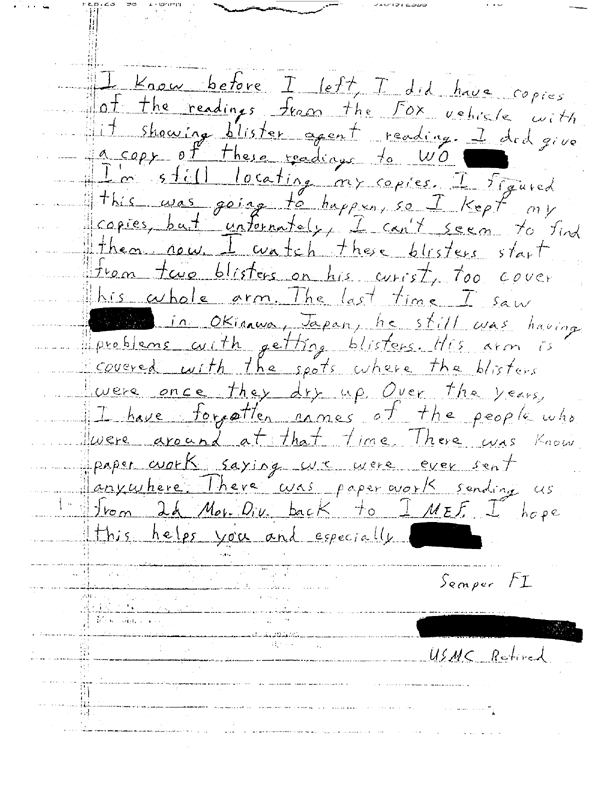 I Know before I left, I did have copies
of the readings from the Fox vehicle with
it showing blister agent reading. I did give
a copy of these readings to WO
I'm still locating my copies. I figured
this was going to happen, so I kept my
copies, but unfornately, I can't seem to find
them now. I watch these blisters start
from two blisters on his wrist, too cover
his whole arm. The last time I saw
in Okinawa, Japan, he still was having
problems with getting blisters. His arm is
covered with the spots where the blisters
were once they dry up. Over the years,
I have forgotten names of the people who
were around at that time. There was Know
paper work saying we were ever sent
anywhere. There was paper work sending us
from 2d Mar. Div. back to I MEF. I hope
this helps you and especially
Semper FI
USMC Retired